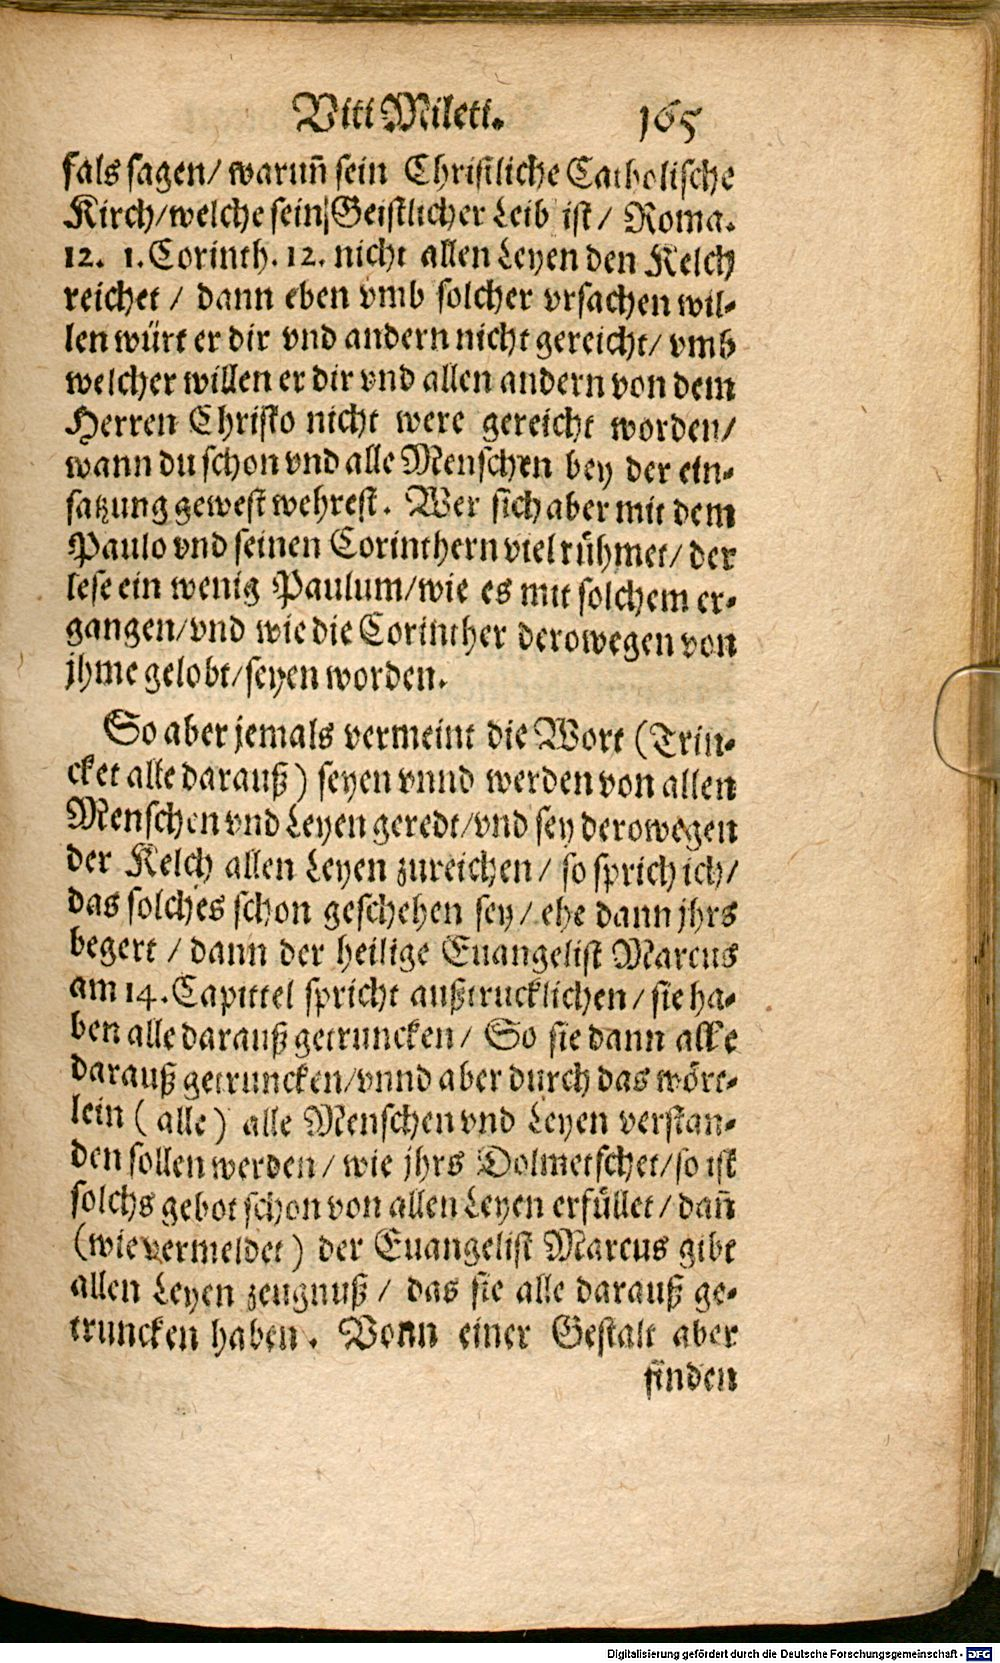 Viti Mileti. 165
fals sagen/ warum̃ sein Christliche Catholische
Kirch/welche sein Geistlicher Leib ist/ Roma.
12. 1. Corinth. 12. nicht allen Leyen den Kelch
reichet / dann eben vmb solcher vrsachen wil-
len würt er dir vnd andern nicht gereicht/ vmb
welcher willen er dir vnd allen andern von dem
Herren Christo nicht were gereicht worden/
wann du schon vnd alle Menschen bey der ein-
satzung gewest wehrest. Wer sich aber mit dem
Paulo vnd seinen Corinthern viel rühmet/ der
lese ein wenig Paulum/wie es mit solchem er-
gangen/vnd wie die Corinther derowegen von
jhme gelobt/seyen worden.
So aber jemals vermeint die Wort (Trin-
cket alle darauß) seyen vnnd werden von allen
Menschen vnd Leyen geredt/vnd sey derowegen
der Kelch allen Leyen zureichen / so sprich ich/
das solches schon geschehen sey/ ehe dann jhrs
begert / dann der heilige Euangelist Marcus
am 14. Capittel spricht außtrucklichen/ sie ha-
ben alle darauß getruncken/ So sie dann alle
darauß getruncken/vnnd aber durch das wört-
lein ( alle ) alle Menschen vnd Leyen verstan-
den sollen werden/ wie jhrs Dolmetschet/so ist
solchs gebot schon von allen Leyen erfüllet/ dañ
(wie vermeldet) der Euangelist Marcus gibt
allen Leyen zeugnuß / das sie alle darauß ge-
truncken haben. Vonn einer Gestalt aber
finden
Digitalisierung gefördert durch die Deutsche Forschungsgemeinschaft - DFG